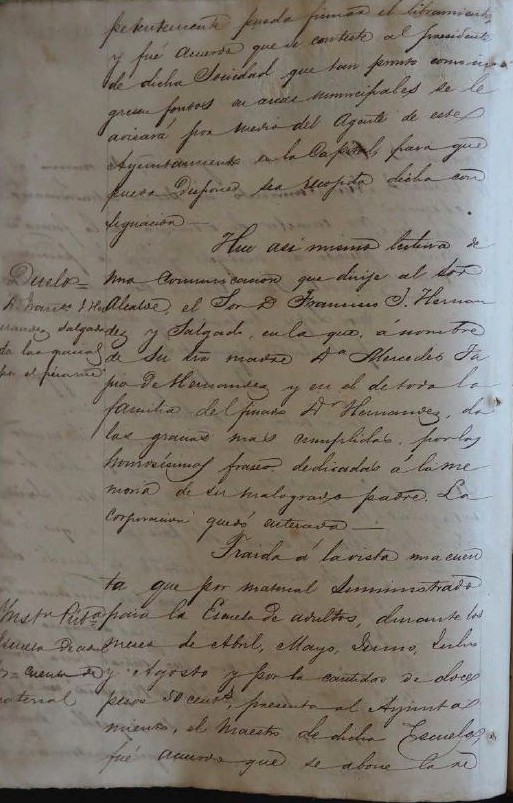 pueda firmar el libramiento
y fué acuerdo que se conteste al presidente
de dicha Sociedad que tan pronto como in
gresen fondos en arcas municipales se le
avisará por medio del Agente de este
Ayuntamiento en la Capital para que
pueda disponer sea recogida dicha con
signacion
Hue asi mismo lectura de
una comunicacion que dirije al Sor
Alcalde, el Sor D. Francisco J. Hernan
dez y Salgado, en la que, á nombre
de Su madre Da Mercedes Ta
pia De Hernandez y en el de toda la
familia del finado Hernandez, da
las gracias mas cumplidas, por las
honrosísimas frases dedicadas á la me
moria de su malogrado padre. La
corporacion quedó enterada
Duelo=
D. Franco J. Her
nandez Salgado
da las gracias
por el pésame
Traida á la vista una cuen
ta que por material Suministrado
para la Escuela de adultos, durante los
meses de Abril, Mayo, Junio, Julio
y Agosto y por la cantidad de doce
pesos 50 centa, presenta al Ayunta
miento, el Maestro de dicha Escuela,
fué acuerdo que se abone la re
Escuela de
cuenta de
material